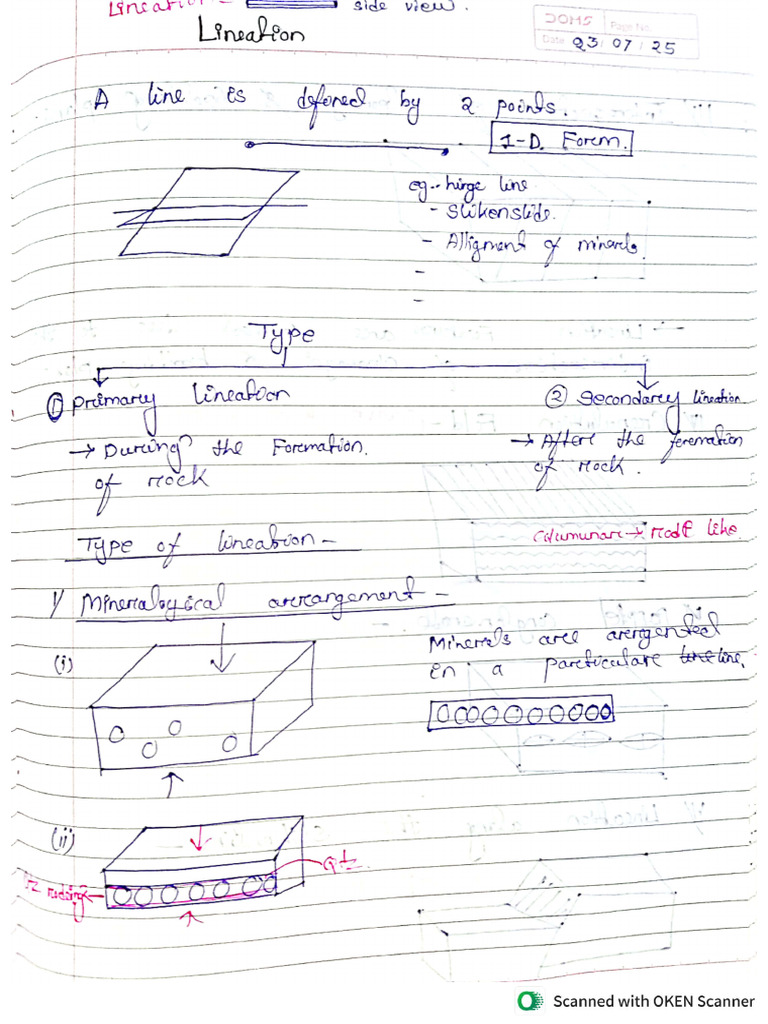 Lineation - side view.
Lineation
DOMS Page No.
Date 23 / 07 / 25
A line is defined by 2 points.
1-D. Form.
eg.- hinge line
- Slikenslide.
- Alligment of minerals.
-
-
Type
① Primary lineation
② Secondary lineation
→ During the Formation.
of rock
→ After the formation
of rock.
Type of lineation -
columunar → rodf like
1/ Mineralogical arrangement -
(i)
Minerals are arengented
in a particulare line.
(ii)
qtz
rodding
Scanned with OKEN Scanner